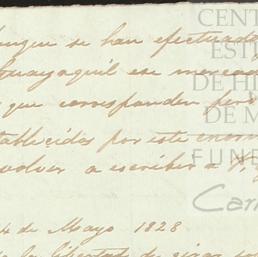 aunque se han efectuado
Guayaquil ese mercado
que corresponden pero
tablecidos por este
volver a escribir a V.
4 de Mayo 1828
de la libertad de
CENT
EST
DE HI
DE M
FUN
Car